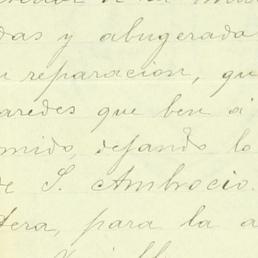 das y abugerada
reparacion, qu
aredes que ben á
dejando lo
de S. Ambrocio.
tera, para la a